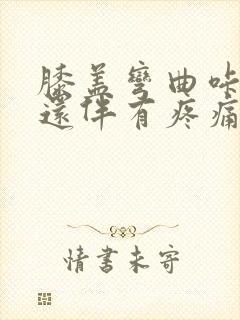 膝盖弯曲咔
还伴有疼痛
情書未寄